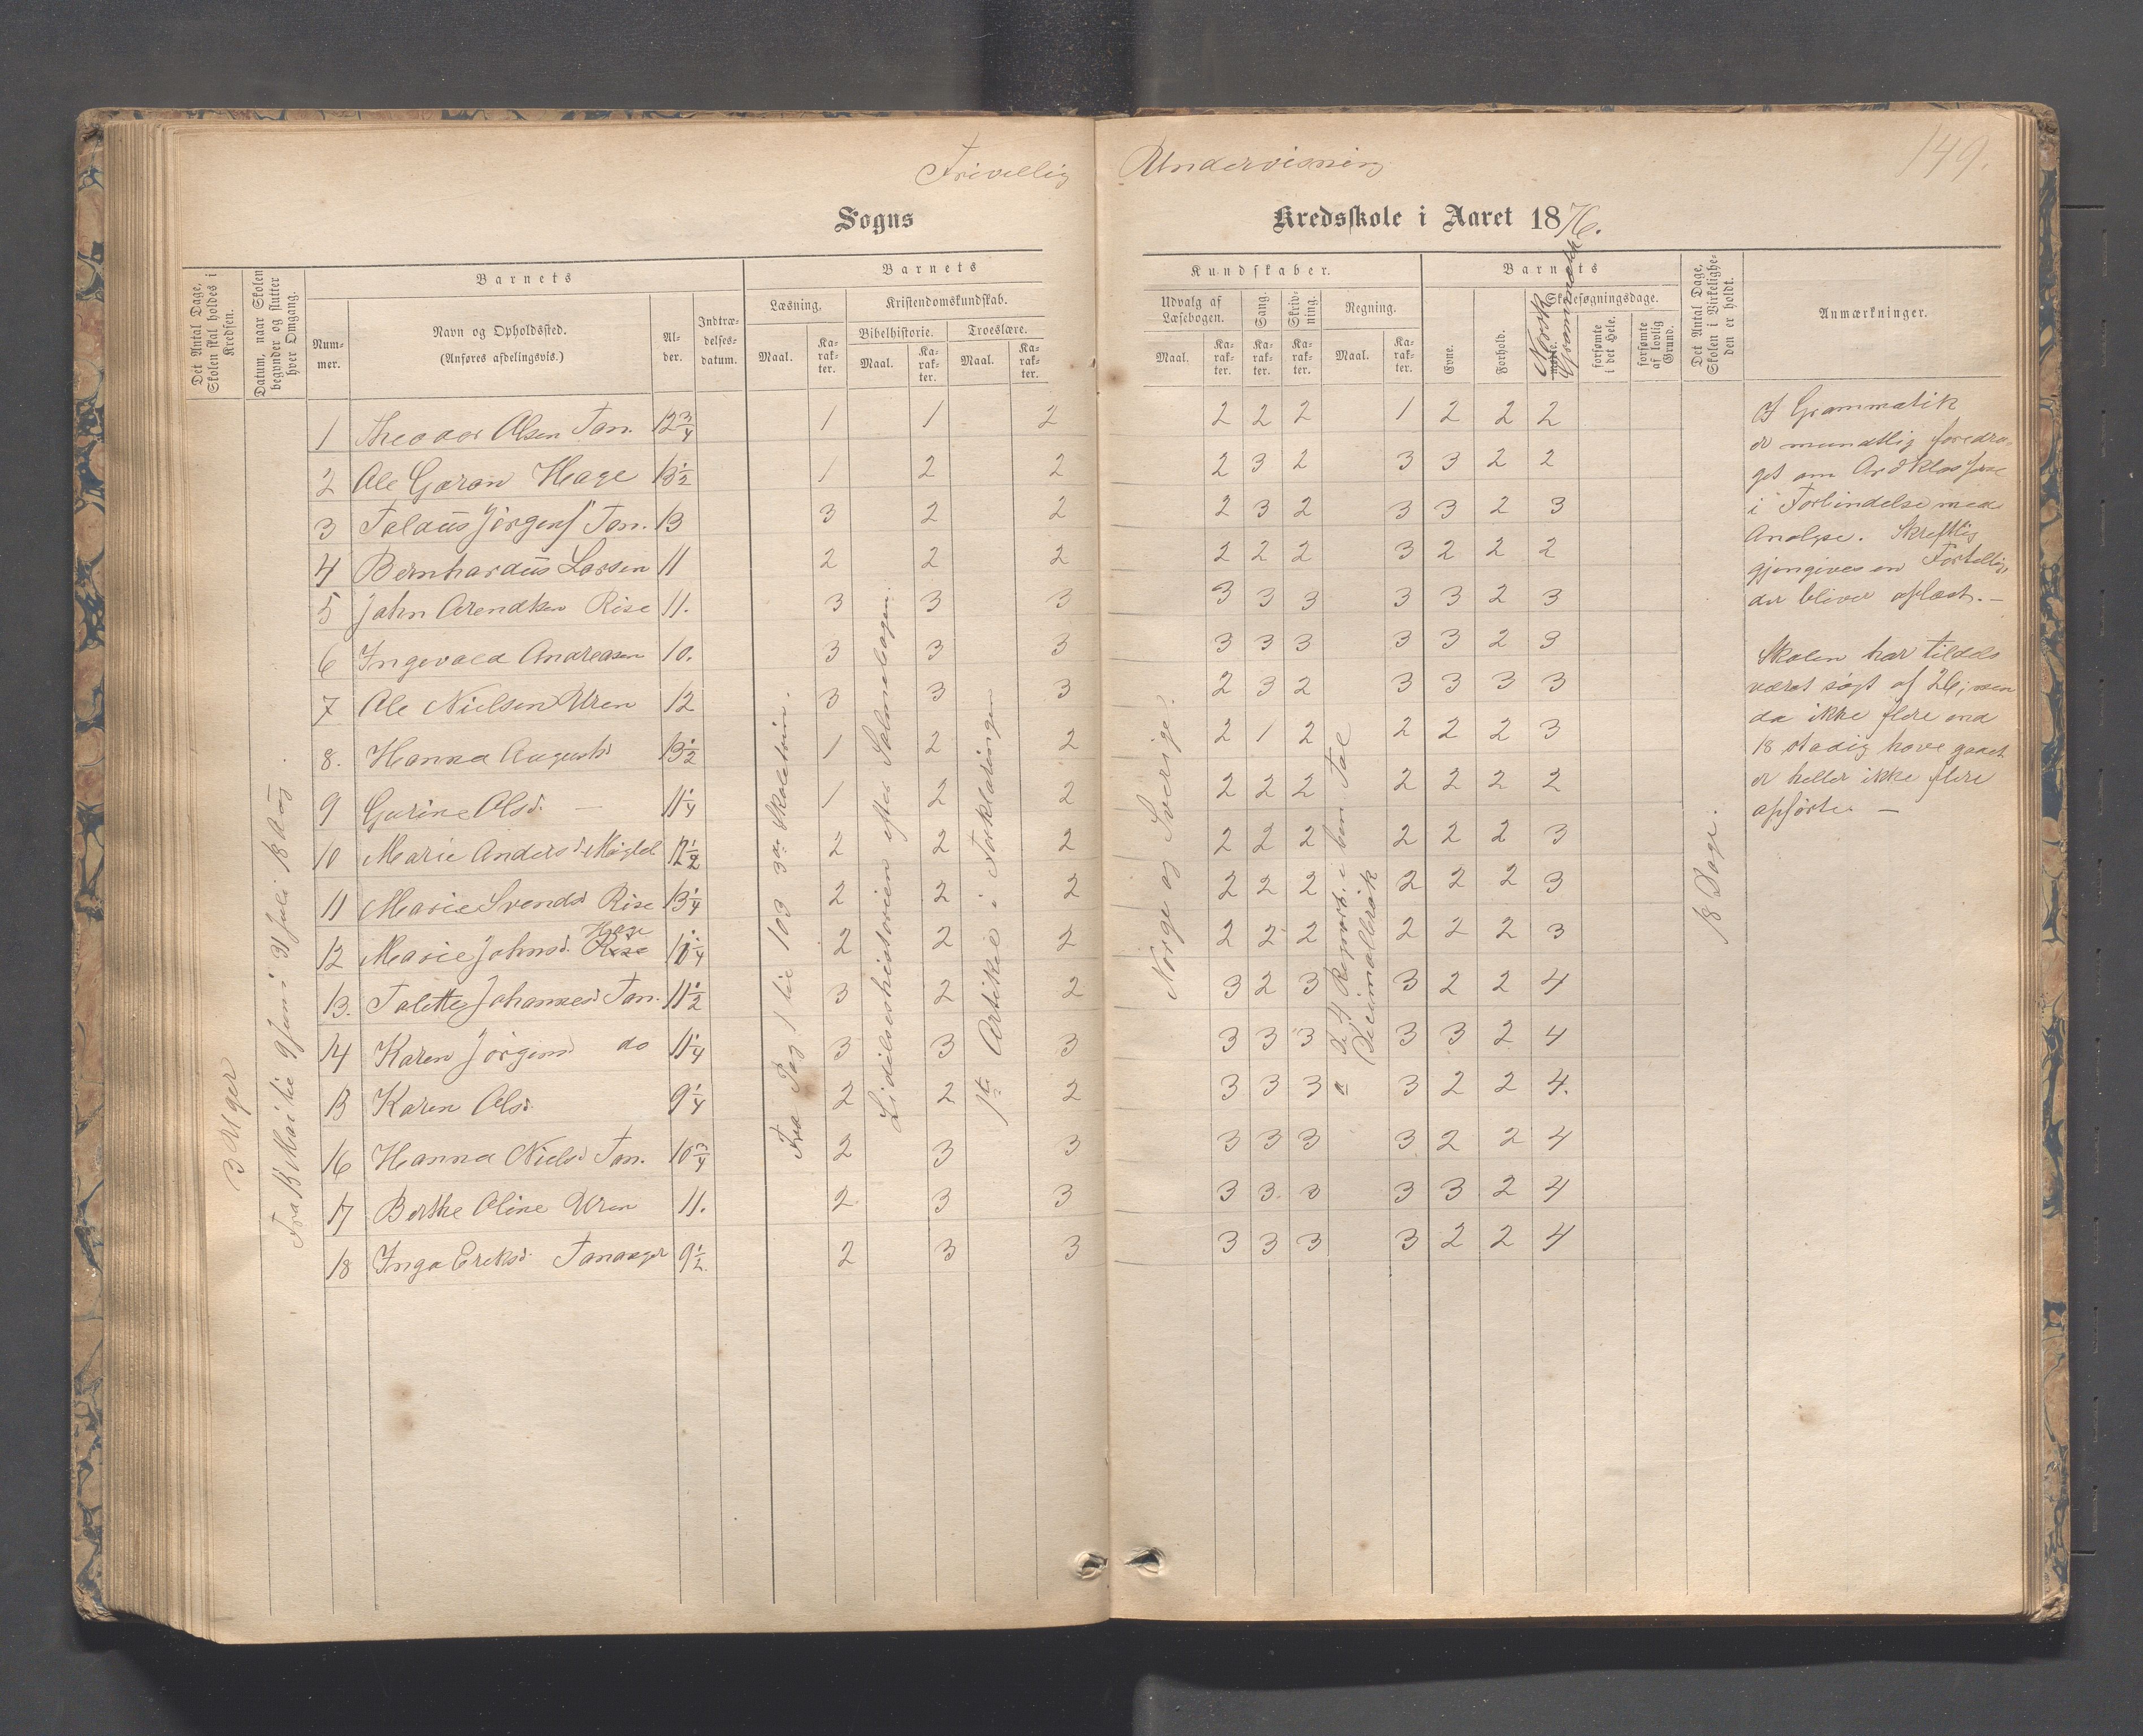 Frivillig Undervisning
149.
Sogns Kredsskole i Aaret 1876.
Det Antal Dage, Skolen skal holdes i Kredsen.
Datum, naar Skolen begynder og slutter hver Omgang.
Barnets
Num-mer.
Navn og Opholdssted.
(Anføres afdelingsvis.)
Al-der.
Indtræ-delses-datum.
Barnets
Læsning.
Maal.
Ka-rak-ter.
Kristendomskundskab.
Bibelhistorie.
Maal.
Ka-rak-ter.
Troeslære.
Maal.
Ka-rak-ter.
Kundskaber.
Udvalg af Læsebogen.
Maal.
Ka-rak-ter.
Sang.
Ka-rak-ter.
Skriv-ning.
Ka-rak-ter.
Regning.
Maal.
Ka-rak-ter.
Barnets
Evne.
Forhold.
Norsk Grammatik
Skolesøgningsdage.
forsømte i det Hele.
forsømte af lovlig Grund.
Det Antal Dage, Skolen i Virkelighe-den er holdt.
Anmærkninger.
3 Uger
Fra 15 Mai til 9 Juni 31 Juli 18 Aug.
Fra Pag 1 til 103 3die Skoletrin.
Lidelseshistorien efter Salmebogen.
1ste Artikel i Forklaringen
Norge og Sverige.
a De 4 Regnart. i ben. Tal
Decimalbrøk
18 Dage.
1 Theodor Olsen Tan. 12 3/4 1 1 2 2 2 2 1 2 2 2
2 Ole Goran Hage 13 1/2 1 2 2 2 3 2 3 3 2 2
3 Taláus Jörgens Tan. 13 3 2 2 2 3 2 3 3 2 3
4 Bernhardus Larsen 11 2 2 2 2 2 2 3 2 2 2
5 John Arendsen Risе 11. 3 3 3 3 3 3 3 3 2 3
6 Ingevald Andreasen 10. 3 3 3 3 3 3 3 3 2 3
7 Ole Nielsen Uren 12 3 3 3 2 3 2 3 3 3 3
8. Hanna Augustsd 13 1/2 1 2 2 2 1 2 2 2 2 3
9 Gurine Olsd. — 11 1/4 1 2 2 2 2 2 2 2 2 2
10 Marie Andersd 12 1/2 2 2 2 2 2 2 2 2 2 3
11 Marie Svendsd Rise 13 1/4 2 2 2 2 2 2 2 2 2 3
12 Marie Johnsd. Hage 10 1/4 2 2 2 2 2 2 2 2 2 3
13. Talette Johannesd Tan. 11 1/2 3 2 2 3 2 3 3 2 2 4
14 Karen Jörgensd do 11 1/4 3 3 3 3 3 3 3 3 2 4
15 Karen Olsd. 9 1/4 2 2 2 3 3 3 3 2 2 4.
16 Hanna Nielsd Tan. 10 3/4 2 3 3 3 3 3 3 2 2 4
17 Berthe Oline Uren 11. 2 3 3 3 3 3 3 3 2 4
18 Inga Eriksd. Tananger 9 1/2 2 3 3 3 3 3 3 2 2 4
I Grammatik
er mundtlig foredra-
get om Ordklasserne
i Forbindelse med
Analyse. Skriftlig
gjengives en Fortelling
der bliver oplæst. —
Skolen har tildels
været søgt af 26, men
da ikke flere end
18 stadig have gaaet
er heller ikke flere
opførte. —